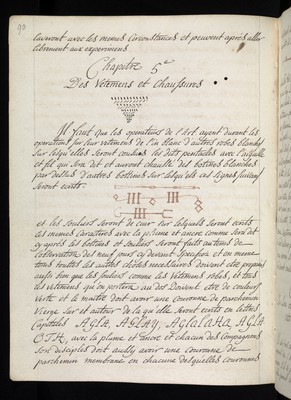 90
laveront avec les memes Circonstances et peuvent apres aller
librement aux experimens
Chapitre 5e
Des Vetemens et Chaussures
Il faut que les operateurs de l'Art ayent durant les
operations sur leur vetemens de lin blanc d'autres robes blanches
sur lesquelles seront les dits pentacles avec l'aiguille
et fil qui sera dit et auront chaussé des bottines blanches
par dessus d'autres bottines sur lesquels ces signes suivans
seront ecrits
et les souliers seront de cuir sur lesquels seront ecrits
les memes Caracteres avec la plume et ancre comme sera dit
cy après les bottines et souliers seront faits
l'observation des neuf jours cy devant specifiez et en meme
tems touttes les autres choses necessaires doivent etre
aussi bien que les souliers comme les Vetemens robes, et tous
les vetemens qu'on portera au dos doivent etre de couleur
Verte et le maitre doit avoir une Couronne de parchemin
Vierge sur et autour de laquelle seront ecrits en lettres
Capitales AGLA, AGLAY, AGLALAHA, AGLA
OTH, avec la plume et ancre et chacun des Compagnons
son disciples doit aussy avoir une couronne de
parchemin membrane en chacune desquelles couronnes